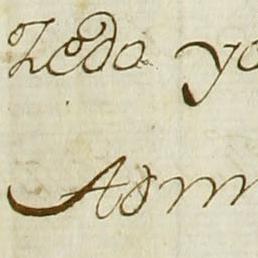 Zedo yo
Adm